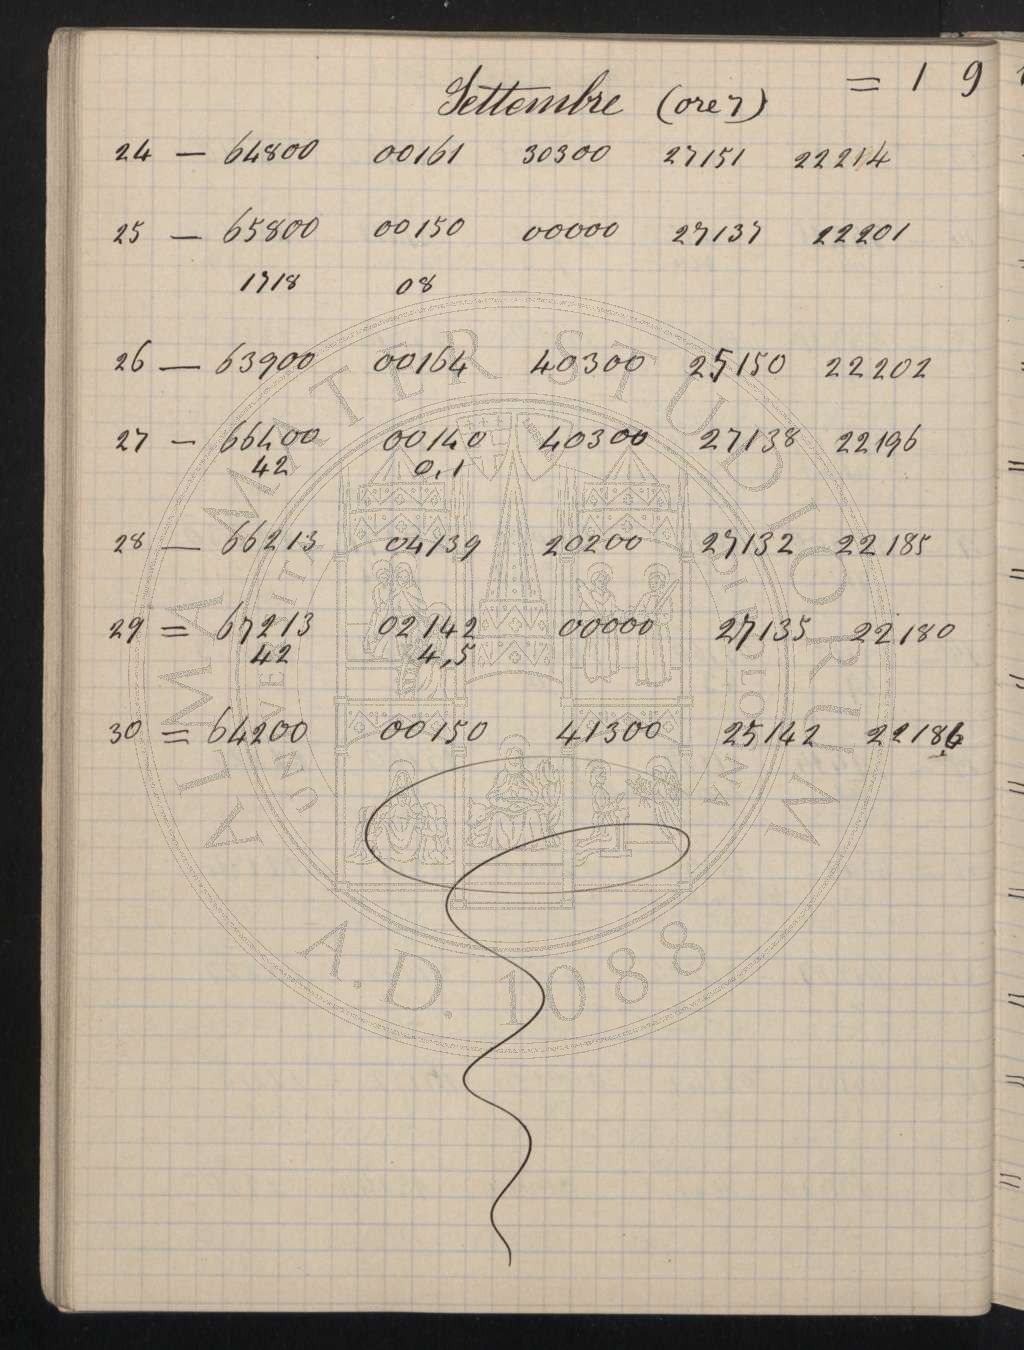 Settembre (ore 7) = 1 9
24 — 64800 00161 30300 27151 22214
25 — 65800 00150 00000 27137 22201
1718 08
26 — 63900 00164 40300 25150 22202
27 — 66400 00140 40300 27138 22196
42 0,1
28 — 66213 04139 20200 27132 22185
29 = 67213 02142 00000 27135 22180
42 4,5
30 = 64200 00150 41300 25142 22186
ALMA MATER STUDIORUM
A.D. 1088